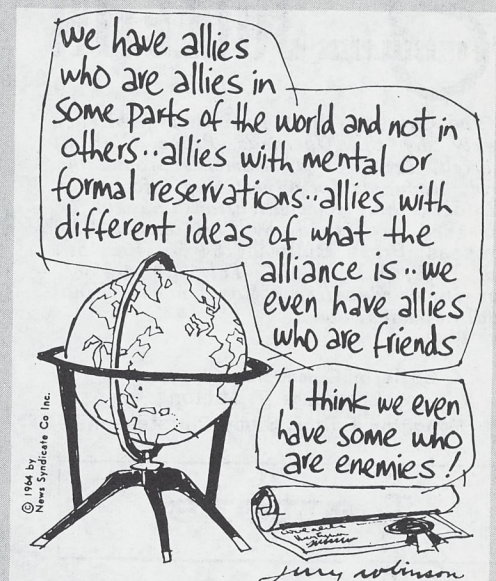 we have allies
who are allies in
some parts of the world and not in
others..allies with mental or
formal reservations..allies with
different ideas of what the
alliance is..we
even have allies
who are friends
I think we even
have some who
are enemies!
© 1964 by
News Syndicate Co Inc.
jerry robinson